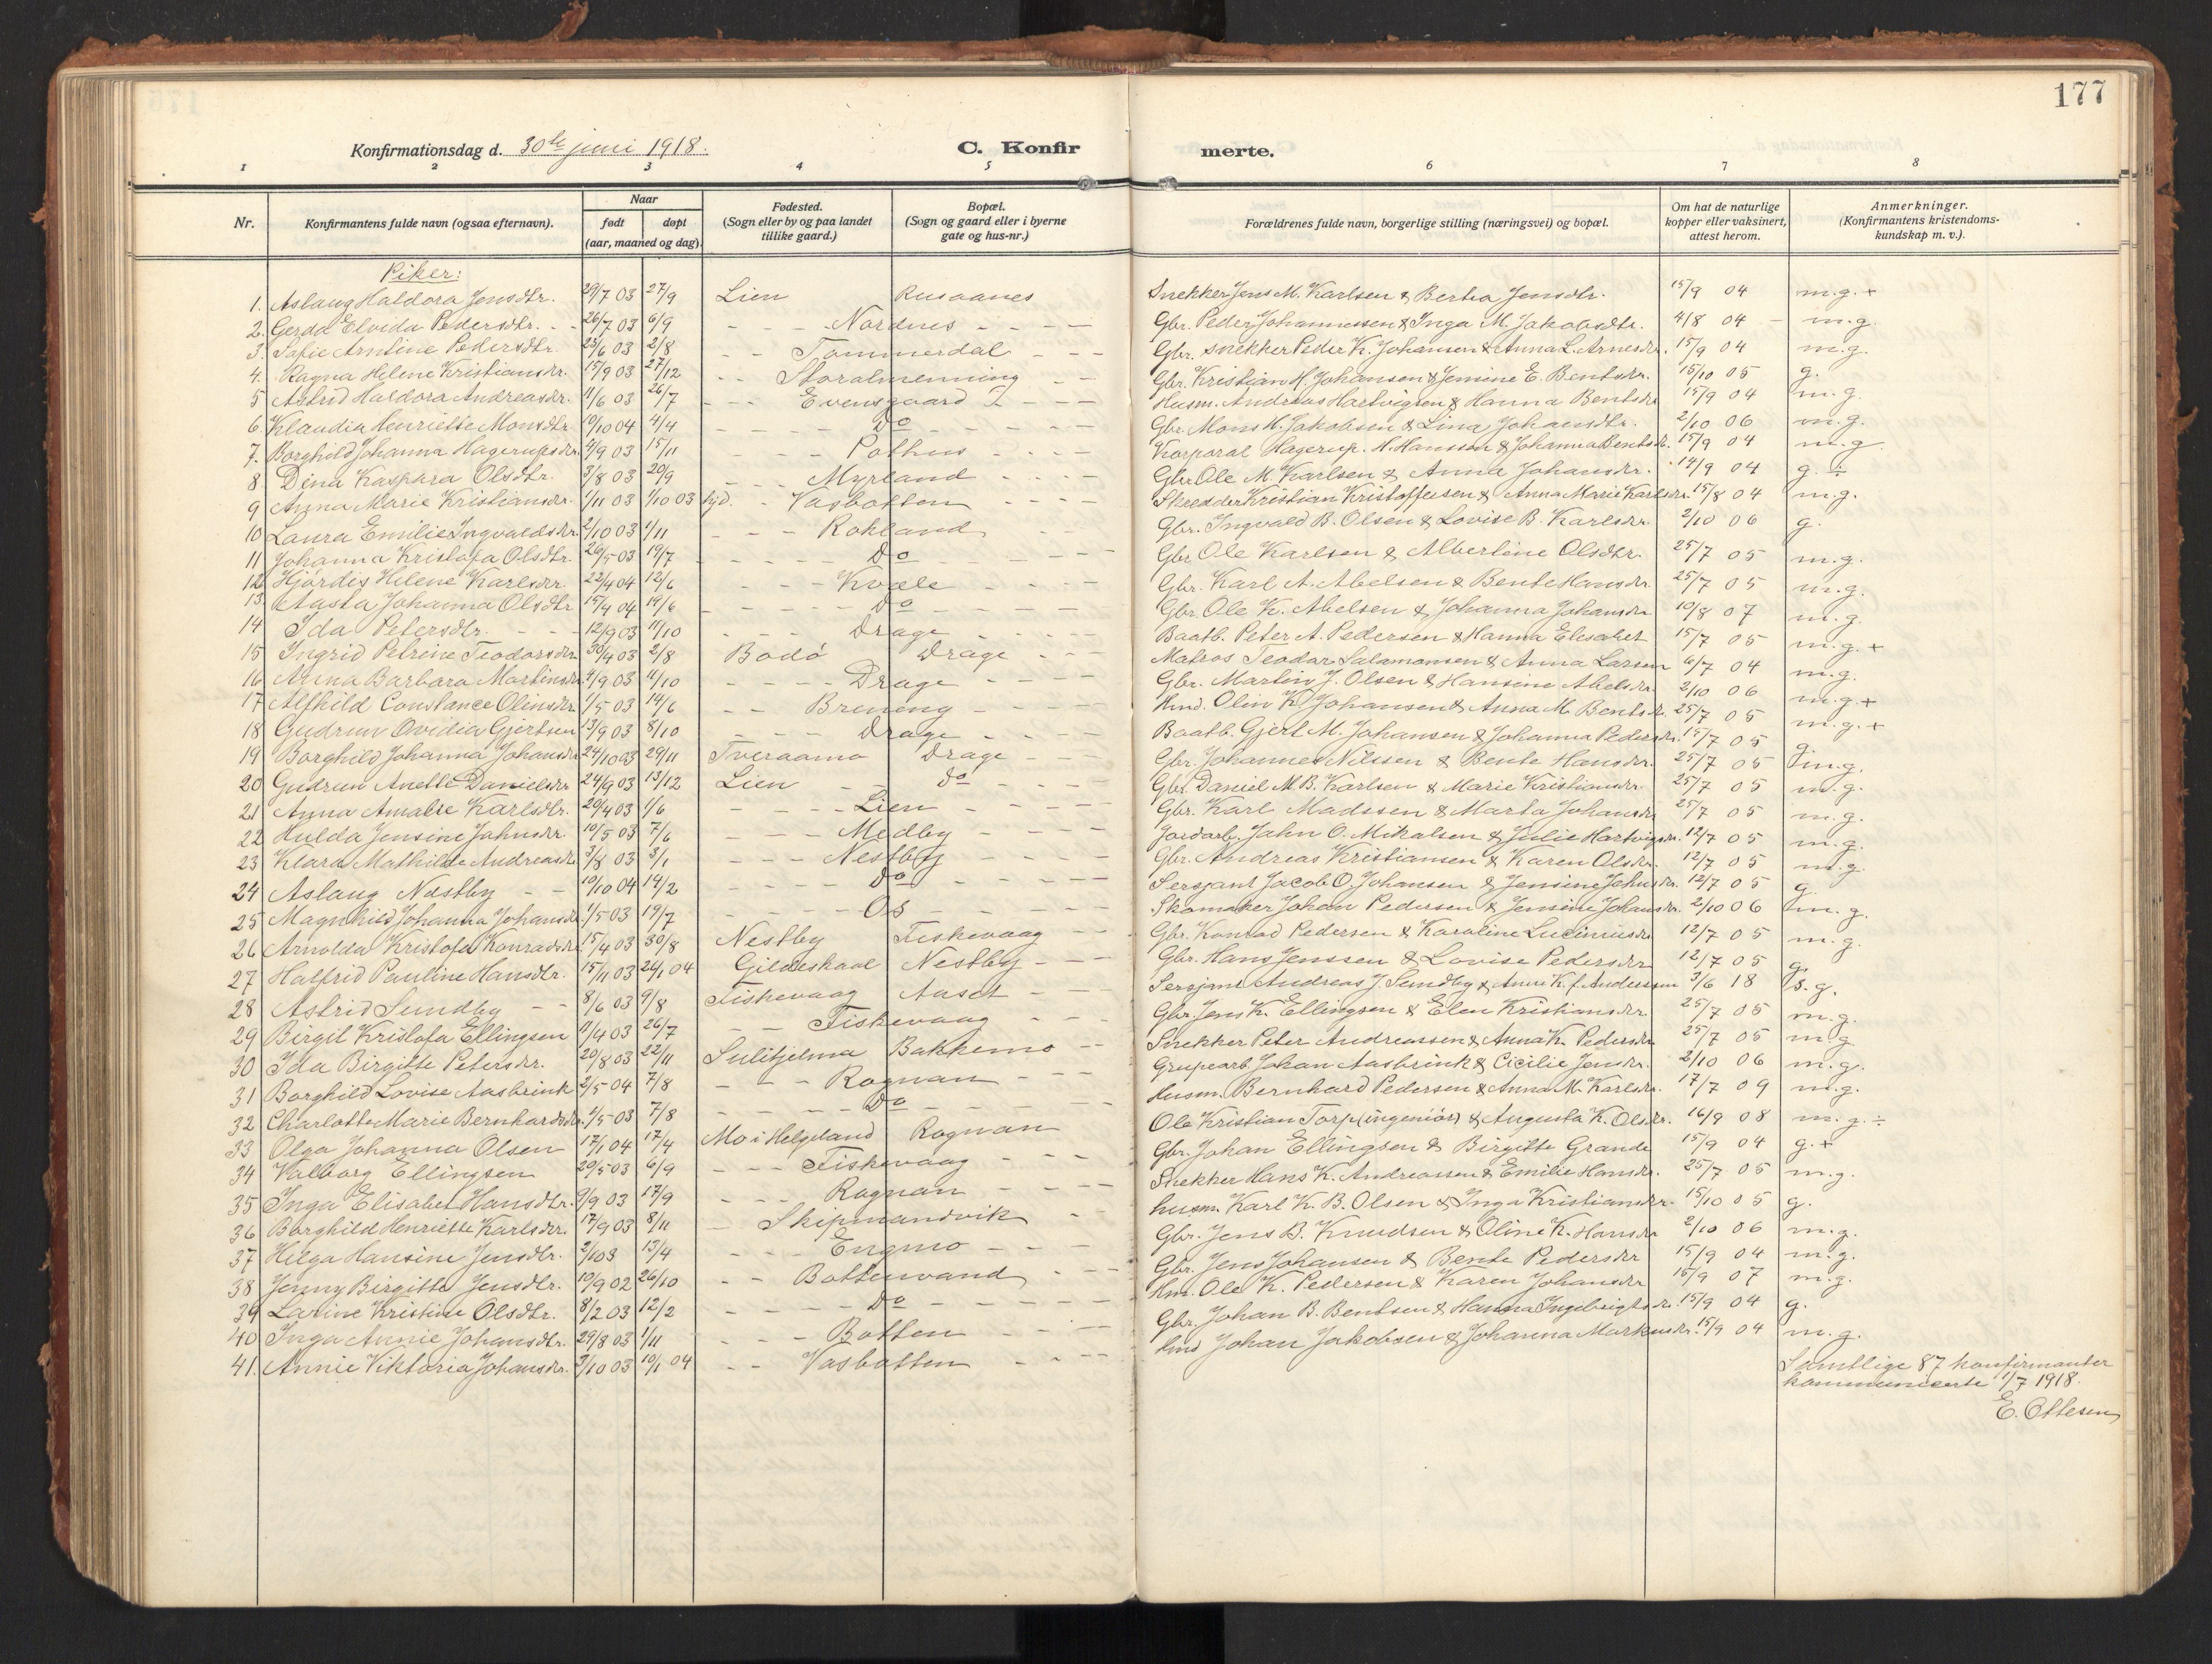 177
Konfirmationsdag d. 30te juni 1918. C. Konfir merte.
1 2 3 4 5 6 7 8
Nr. Konfirmantens fulde navn (ogsaa efternavn). Naar født døpt (aar, maaned og dag). Fødested. (Sogn eller by og paa landet tillike gaard.) Bopæl. (Sogn og gaard eller i byerne gate og hus-nr.) Forældrenes fulde navn, borgerlige stilling (næringsvei) og bopæl. Om hat de naturlige kopper eller vaksinert, attest herom. Anmerkninger. (Konfirmantens kristendoms-kundskap m. v.).
Piker:
1. Aslaug Haldora Jensdtr. 29/7 03 27/9 Lien Rusaanes Snekker Jens M. Karlsen & Berta Jensdtr. 15/9 04 m.g.+
2. Gerda Elvida Pedersdtr. 26/7 03 6/9 Nordnes Gbr. Peder Johannessen & Inga M. Jakobsdtr. 4/8 04 m.g.
3. Sofie Arntine Pedersdtr 25/6 03 2/8 Tømmerdal Gbr. snekker Peder K. Johansen & Anna L. Arnesdr. 15/9 04 m.g.
4. Ragna Helene Kristiansdr. 15/9 03 27/12 Storalmenning Gbr. Kristian H. Johansen & Jensine E. Bentsdr. 15/10 05 g.
5 Astrid Haldora Andreasdr. 11/6 03 26/7 Evensgaard Husm. Andreas Hartvigsen & Hanna Bentsdr 15/9 04 m.g.
6. Klaudia Henriette Monsdtr. 10/10 04 4/4 Do Gbr. Mons H. Jakobsen & Lina Johansdtr. 2/10 06 m.g.
7. Borghild Johanna Hagerupsdr. 4/9 03 15/11 Pothus Korporal Hagerup. H. Hansson & Johanna Bentsdr. 15/9 04 m.g
8 Dina Kaspara Olsdtr. 3/8 03 20/9 Myrland Gbr Ole M. Karlsen & Anna Johansdr. 14/9 04 g. ÷
9 Anna Marie Kristiansdr. 1/11 03 1/10 03 hjd. Vasbotten Skredder Kristian Kristoffersen & Anna Marie Karlsdr. 15/8 04 m.g.
10 Laura Emilie Ingvaldsdr. 2/10 03 1/11 Rokland Gbr. Ingvald B. Olsen & Lovise B. Karlsdr. 2/10 06 g.
11 Johanna Kristofa Olsdtr. 20/5 03 19/7 Do Gbr Ole Karlsen & Albertine Olsdtr. 25/7 05 m.g.
12 Hjørdis Helene Karlsdr. 22/4 04 12/6 Kvæle Gbr. Karl A. Abelsen & Bente Hansdr. 25/7 05 m.g.
13. Aasta Johanna Olsdtr 15/4 04 19/6 Do Gbr. Ole K. Abelsen & Johanna Johansdr 10/8 07 m.g.
14 Ida Petersdtr. 12/9 03 11/10 Drage Baatb. Peter A. Pedersen & Hanna Elisabet 15/7 05 m.g.+
15 Ingrid Petrine Teodorsdr 30/4 03 2/8 Bodø Drage Matros Teodor Salamonsen & Anna Larsen 6/7 04 m.g.
16 Anna Barbara Martinsdr. 4/9 03 11/10 Drage Gbr. Martin J. Olsen & Hansine Abelsdr. 2/10 06 m.g.+
17 Alfhild Constance Olinsdr 1/5 03 14/6 Brenang Hmd. Olin K. Johansen & Anna M. Bentsdr. 25/7 05 m.g.+
18 Gudrun Ovidia Gjertsen 13/9 03 8/10 Drage Baatb. Gjert M. Johansen & Johanna Pedersdr. 15/7 05 g.
19 Borghild Johanna Johansdr 24/10 03 29/11 Tveraamo Drage Gbr. Johannes Nilssen & Bente Hansdr. 25/7 05 m.g.
20 Gudrun Anette Danielsdr 24/9 03 13/12 Lien do Gbr. Daniel M.B. Karlsen & Marie Kristiansdr. 25/7 05 m.g.
21 Anna Amalie Karlsdtr. 20/4 03 1/6 Lien Gbr. Karl Madssen & Marta Johansdr 25/7 05 m.g.
22 Hulda Jensine Jahnsdr. 10/5 03 7/6 Medby Jordarb. Jahn O. Mikalsen & Julie Hartvigsdr. 12/7 05 m.g.
23 Klara Mathilde Andreasdr. 3/8 03 3/1 Nestby Gbr. Andreas Kristiansen & Karen Olsdr. 12/7 05 m.g.
24 Aslaug Nestby 10/10 04 14/2 Do Sersjant Jacob O. Johansen & Jensine Jahnsdr. 12/7 05 g.
25 Magnhild Johanna Johansdr. 1/5 03 19/7 Os Skomaker Johan Pedersen & Jensine Johansdr. 2/10 06 m.g.
26 Arnolda Kristofa Konradsdr. 15/4 03 30/8 Nestby Fiskevaag Gbr. Konrad Pedersen & Karoline Luciniusdr 12/7 05 m.g.
27 Halfrid Pauline Hansdtr. 15/11 03 24/1 04 Gildeskaal Nestby Gbr. Hans Jenssen & Lovise Pedersdr 12/7 05 g.
28 Astrid Sundby 8/6 03 9/8 Fiskevaag Aaset Sersjant Andreas J. Sundby & Anne K. f. Andersen 3/6 18 s.g.
29 Birgit Kristofa Ellingsen 11/4 03 26/7 Fiskevaag Gbr. Jens K. Ellingsen & Elen Kristiansdr. 25/7 05 m.g.
30 Ida Birgitte Petersdr. 20/8 03 22/11 Sulitjelma Bakkemo Snekker Peter Andreassen & Anna K. Pedersdr 25/7 05 m.g
31 Borghild Lovise Aasbrink 2/5 04 7/8 Rognan Grupearb. Johan Aasbrink & Cicilie Jensdr. 2/10 06 m.g.
32 Charlotte Marie Bernhardsdr. 1/5 03 7/8 Do Husm. Bernhard Pedersen & Anna M. Karlsdr. 17/7 09 m.g.
33 Olga Johanna Olsen 17/1 04 17/4 Mo i Helgeland Rognan Ole Kristian Torp (ingeniør) & Augusta K. Olsdr. 16/9 08 m.g. ÷
34 Valborg Ellingsen 20/5 03 6/9 Fiskevaag Gbr. Johan Ellingsen & Birgitte Grande 15/9 04 g.+
35 Inga Elisabet Hansdtr. 9/9 03 17/9 Rognan Snekker Hans K. Andreassen & Emilie Hansdr. 25/7 05 m.g.
36 Borghild Henriette Karlsdr. 17/9 03 8/11 Skipmandvik husm. Karl K. B. Olsen & Inga Kristiansdr. 15/10 05 g.
37 Helga Hansine Jensdtr. 2/1 03 13/4 Engmo Gbr. Jens B. Knudsen & Oline K. Hansdr 2/10 06 m.g.
38 Jenny Birgitte Jensdtr. 10/9 02 26/10 Bottenvand Gbr. Jens Johansen & Bente Pedersdr 15/9 04 m.g.
39 Larine Kristine Olsdtr. 8/2 03 12/2 Do Hmd. Ole K. Pedersen & Karen Johansdr 16/9 07 m.g.
40 Inga Annie Johansdtr. 29/8 03 1/11 Botten Gbr. Johan B. Bentsen & Hanna Ingebrigtsdr. 15/9 04 g.
41. Annie Viktoria Johansdr. 3/10 03 10/1 04 Vasbotten Hmd Johan Jakobsen & Johanna Markusdr. 15/9 04 m.g.
Samtlige 87 konfirmanter
kommunicerte 11/7 1918.
E. Ottesen